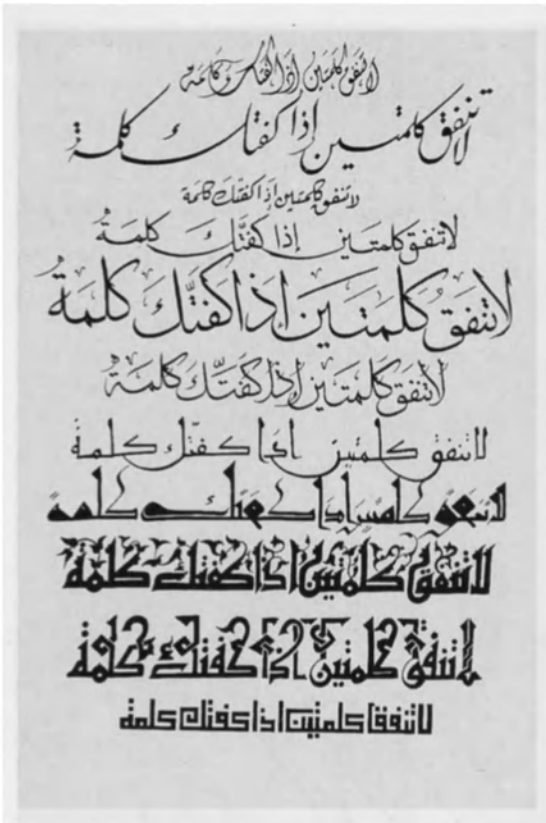 لا تنفق كلمتين إذا كفتك كلمة
لا تنفق كلمتين إذا كفتك كلمة
لا تنفق كلمتين إذا كفتك كلمة
لا تنفق كلمتين إذا كفتك كلمة
لا تنفق كلمتين إذا كفتك كلمة
لا تنفق كلمتين إذا كفتك كلمة
لا تنفق كلمتين اذا كفتك كلمة
لا تنفق كلمتين اذا كفتك كلمة
لا تنفق كلمتين اذا كفتك كلمة
لا تنفق كلمتين اذا كفتك كلمة
لا تنفق كلمتين اذا كفتك كلمة